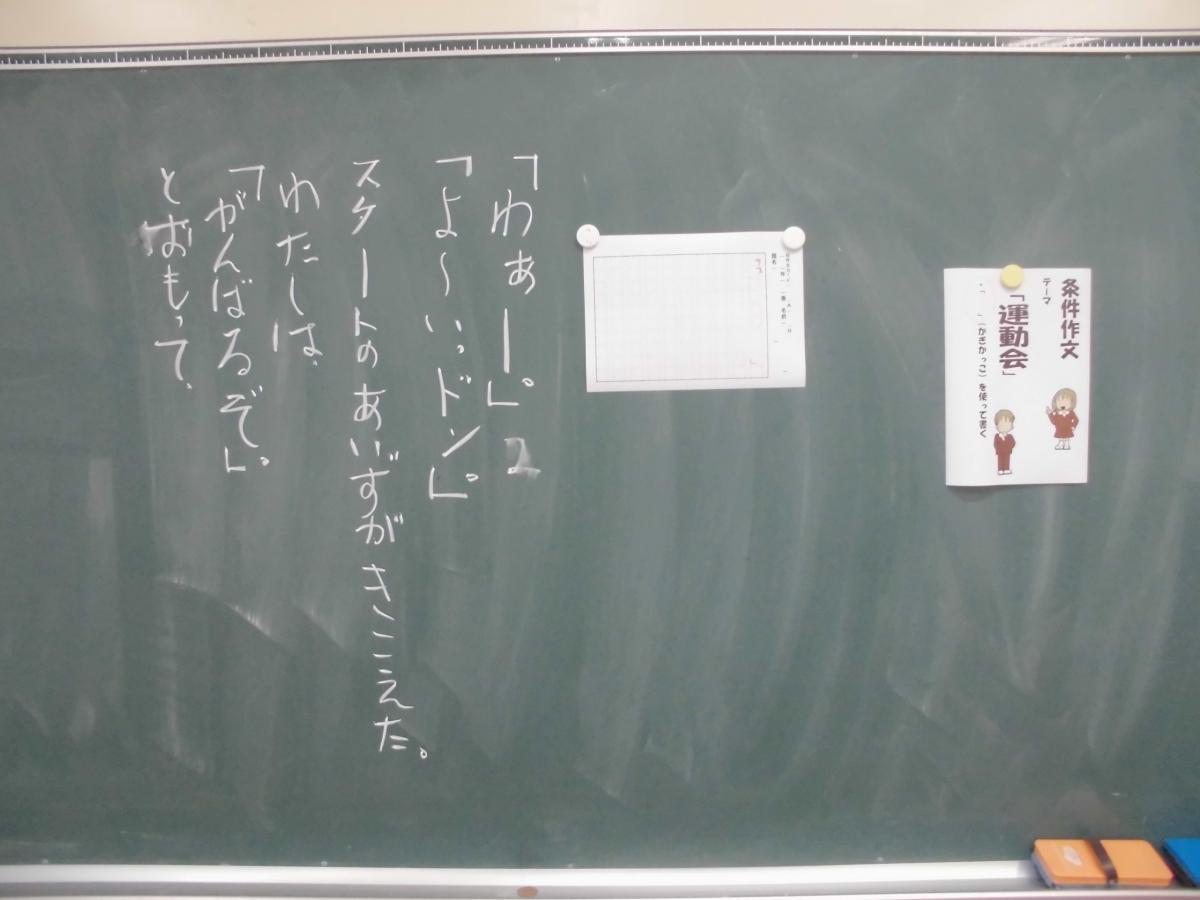 条件作文
テーマ
「運動会」
・「　」(かぎかっこ)を使って書く
「わぁー。」
「よ〜い、ドン。」
スタートのあいずがきこえた。
わたしは、
「がんばるぞ。」
とおもって、